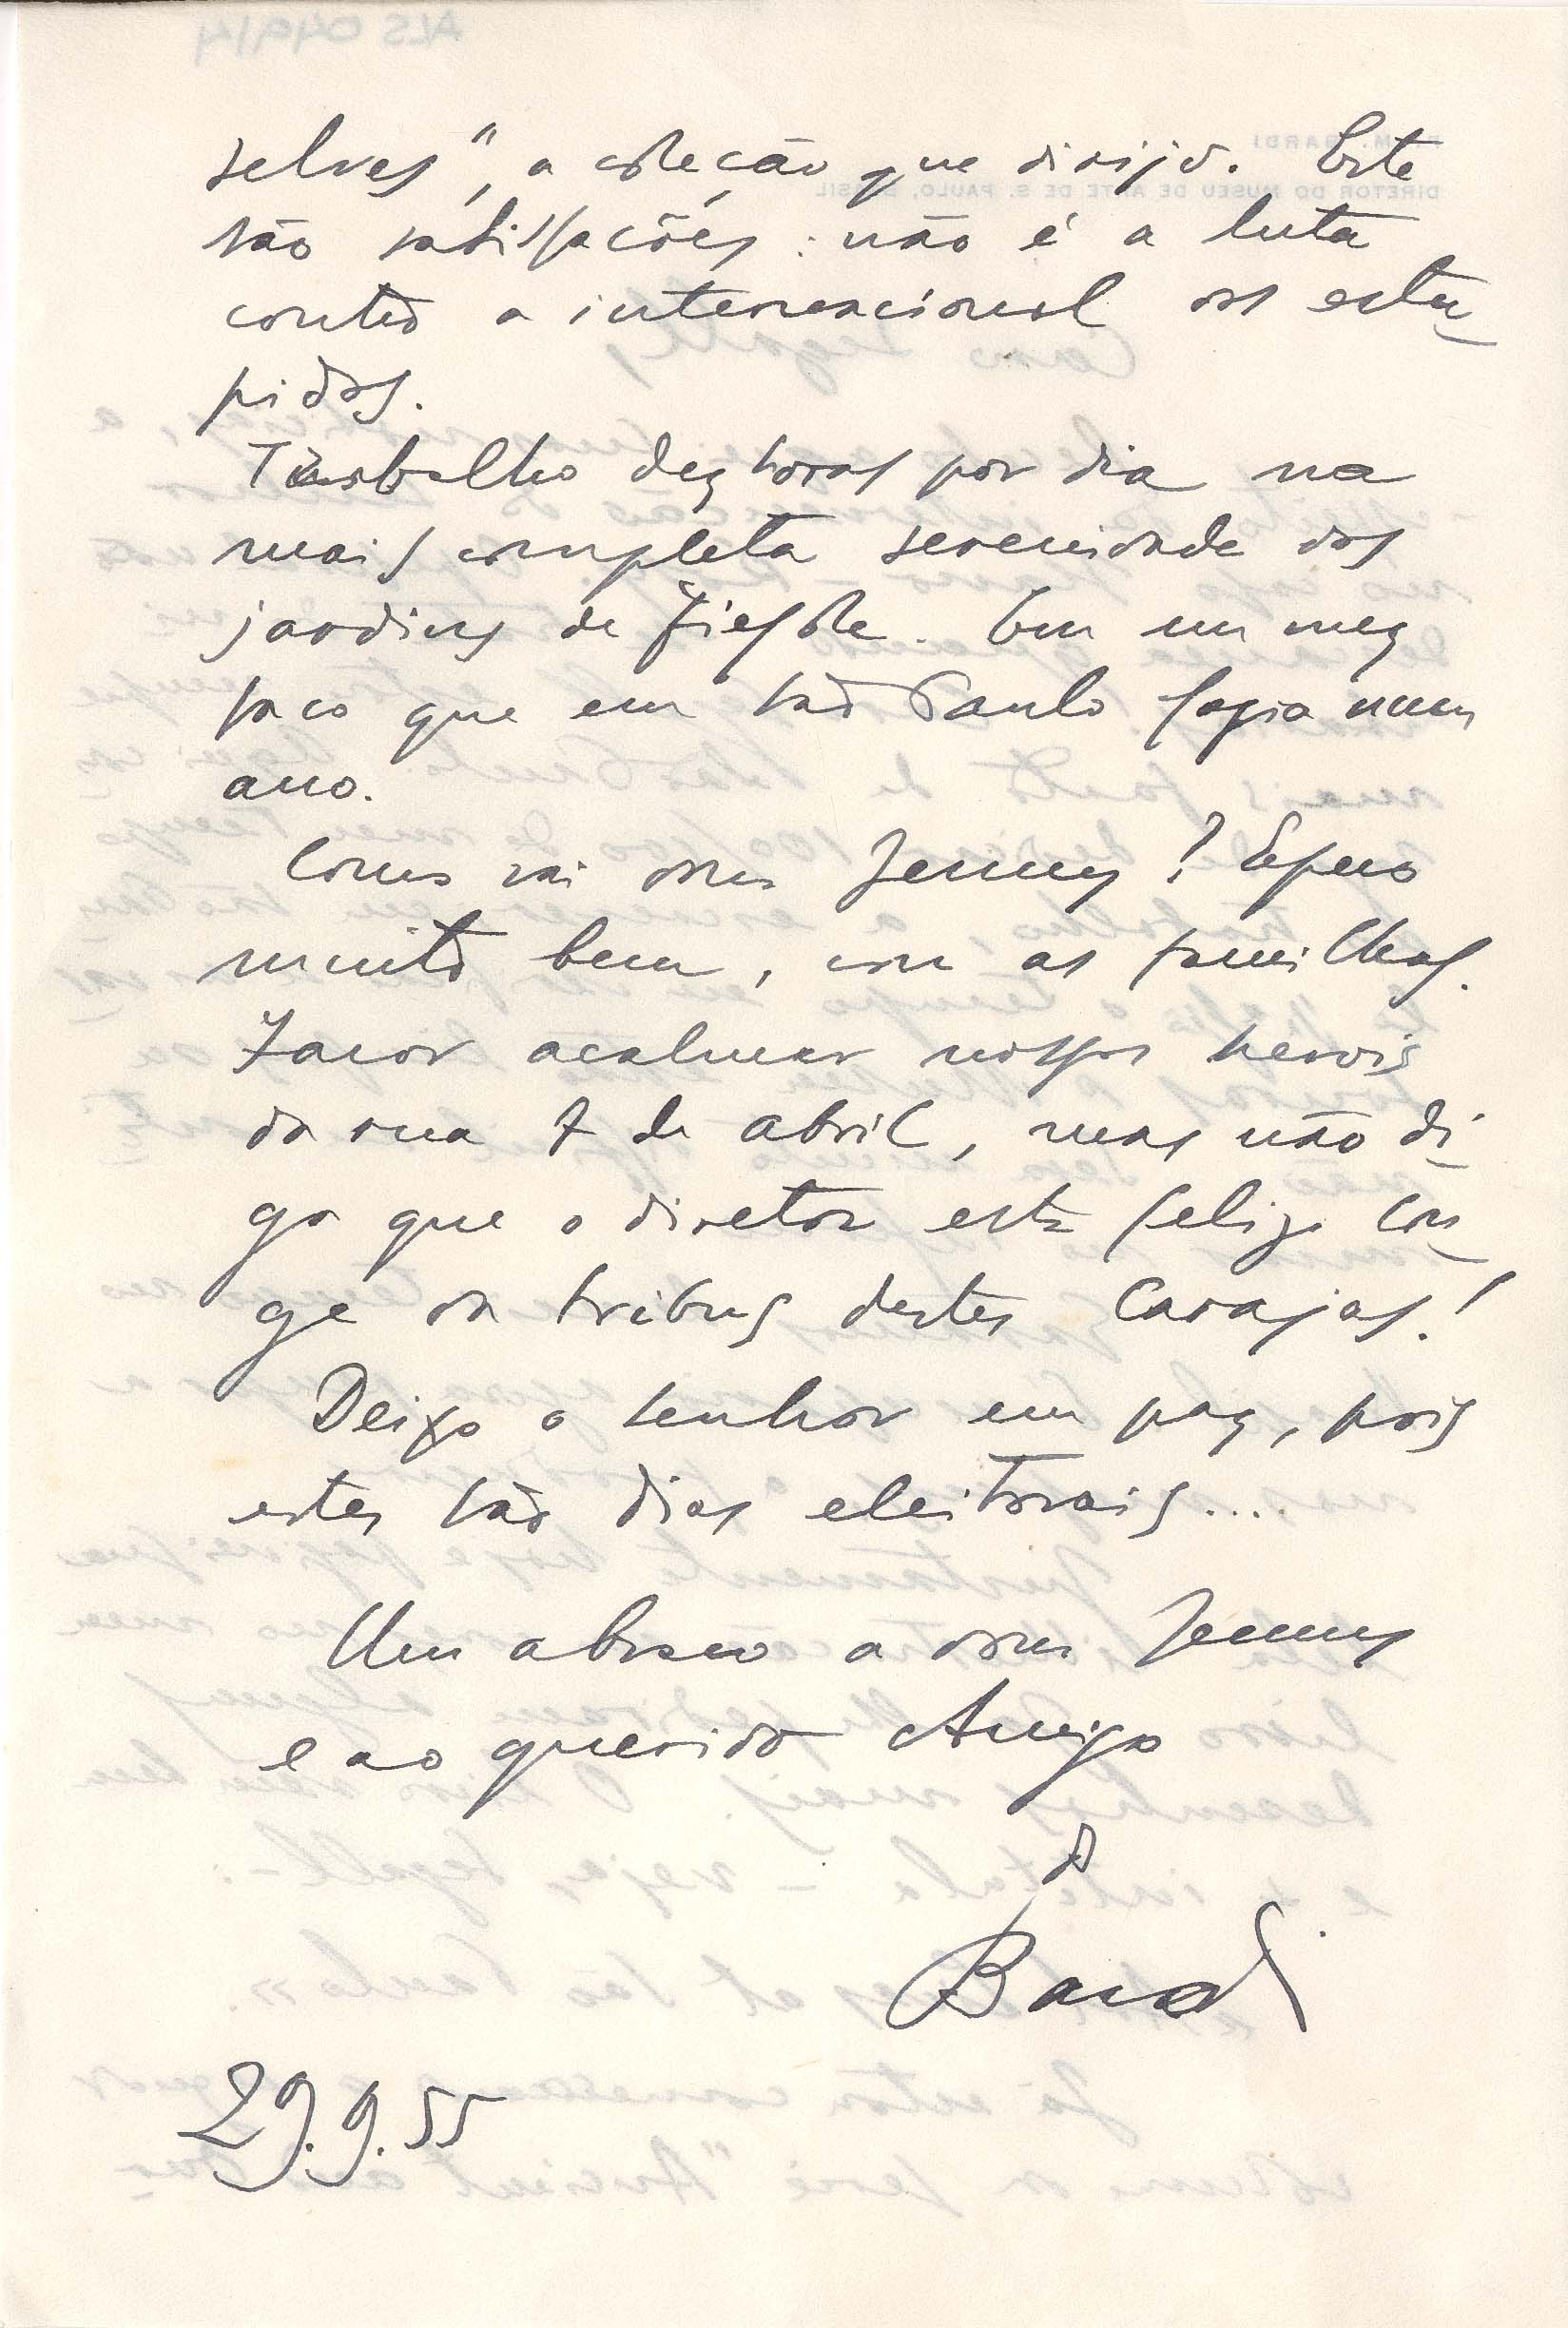 selves", a coleção que dirijo. Este
são satisfações: não é a luta
contro a internacional dos estu-
pidos.
Trabalho dez horas por dia na
mais completa serenidade dos
jardins de Fiesole. Em um mez
faco que em São Paulo fazia num
ano.
Como vai dona Jenny? Espero
muito bem, com as familhas.
Favor acalmar nossos herois
da rua 7 de abril, mas não di-
ga que o diretor esta feliz lon-
ge da tribus destes Carajas!
Deixo o senhor em paz, pois
estes são dias eleitorais....
Um abraco a dona Jenny
e ao querido Amigo
d
Bardi
29.9.55